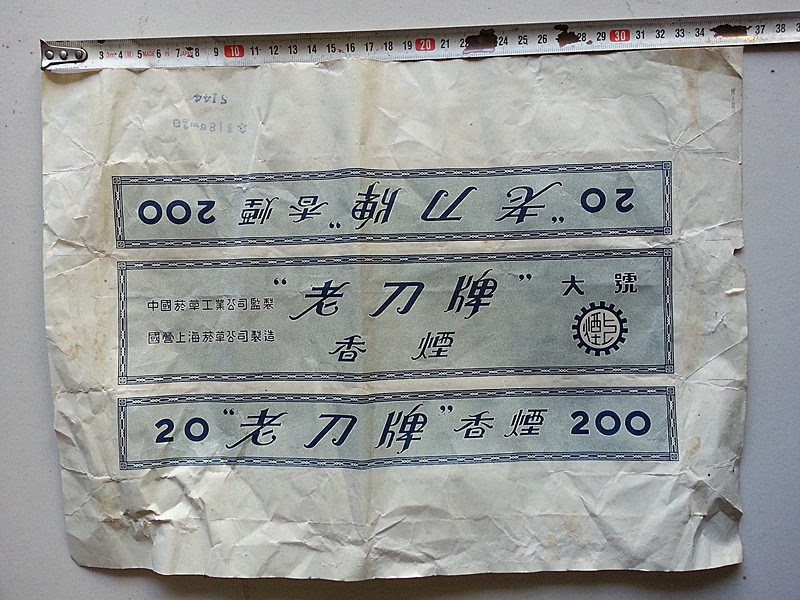 3m 4 5 MADE 6 7 JAPAN 8 9 10 11 12 13 14 15 16 17 18 19 20 21 24 25 28 29 30 31 32 33 34 37 38
5144
20 “老刀牌” 香煙 200
“老刀牌” 大號
中國菸草工業公司監製
國營上海菸草公司製造
香煙
上煙
20 “老刀牌” 香煙 200